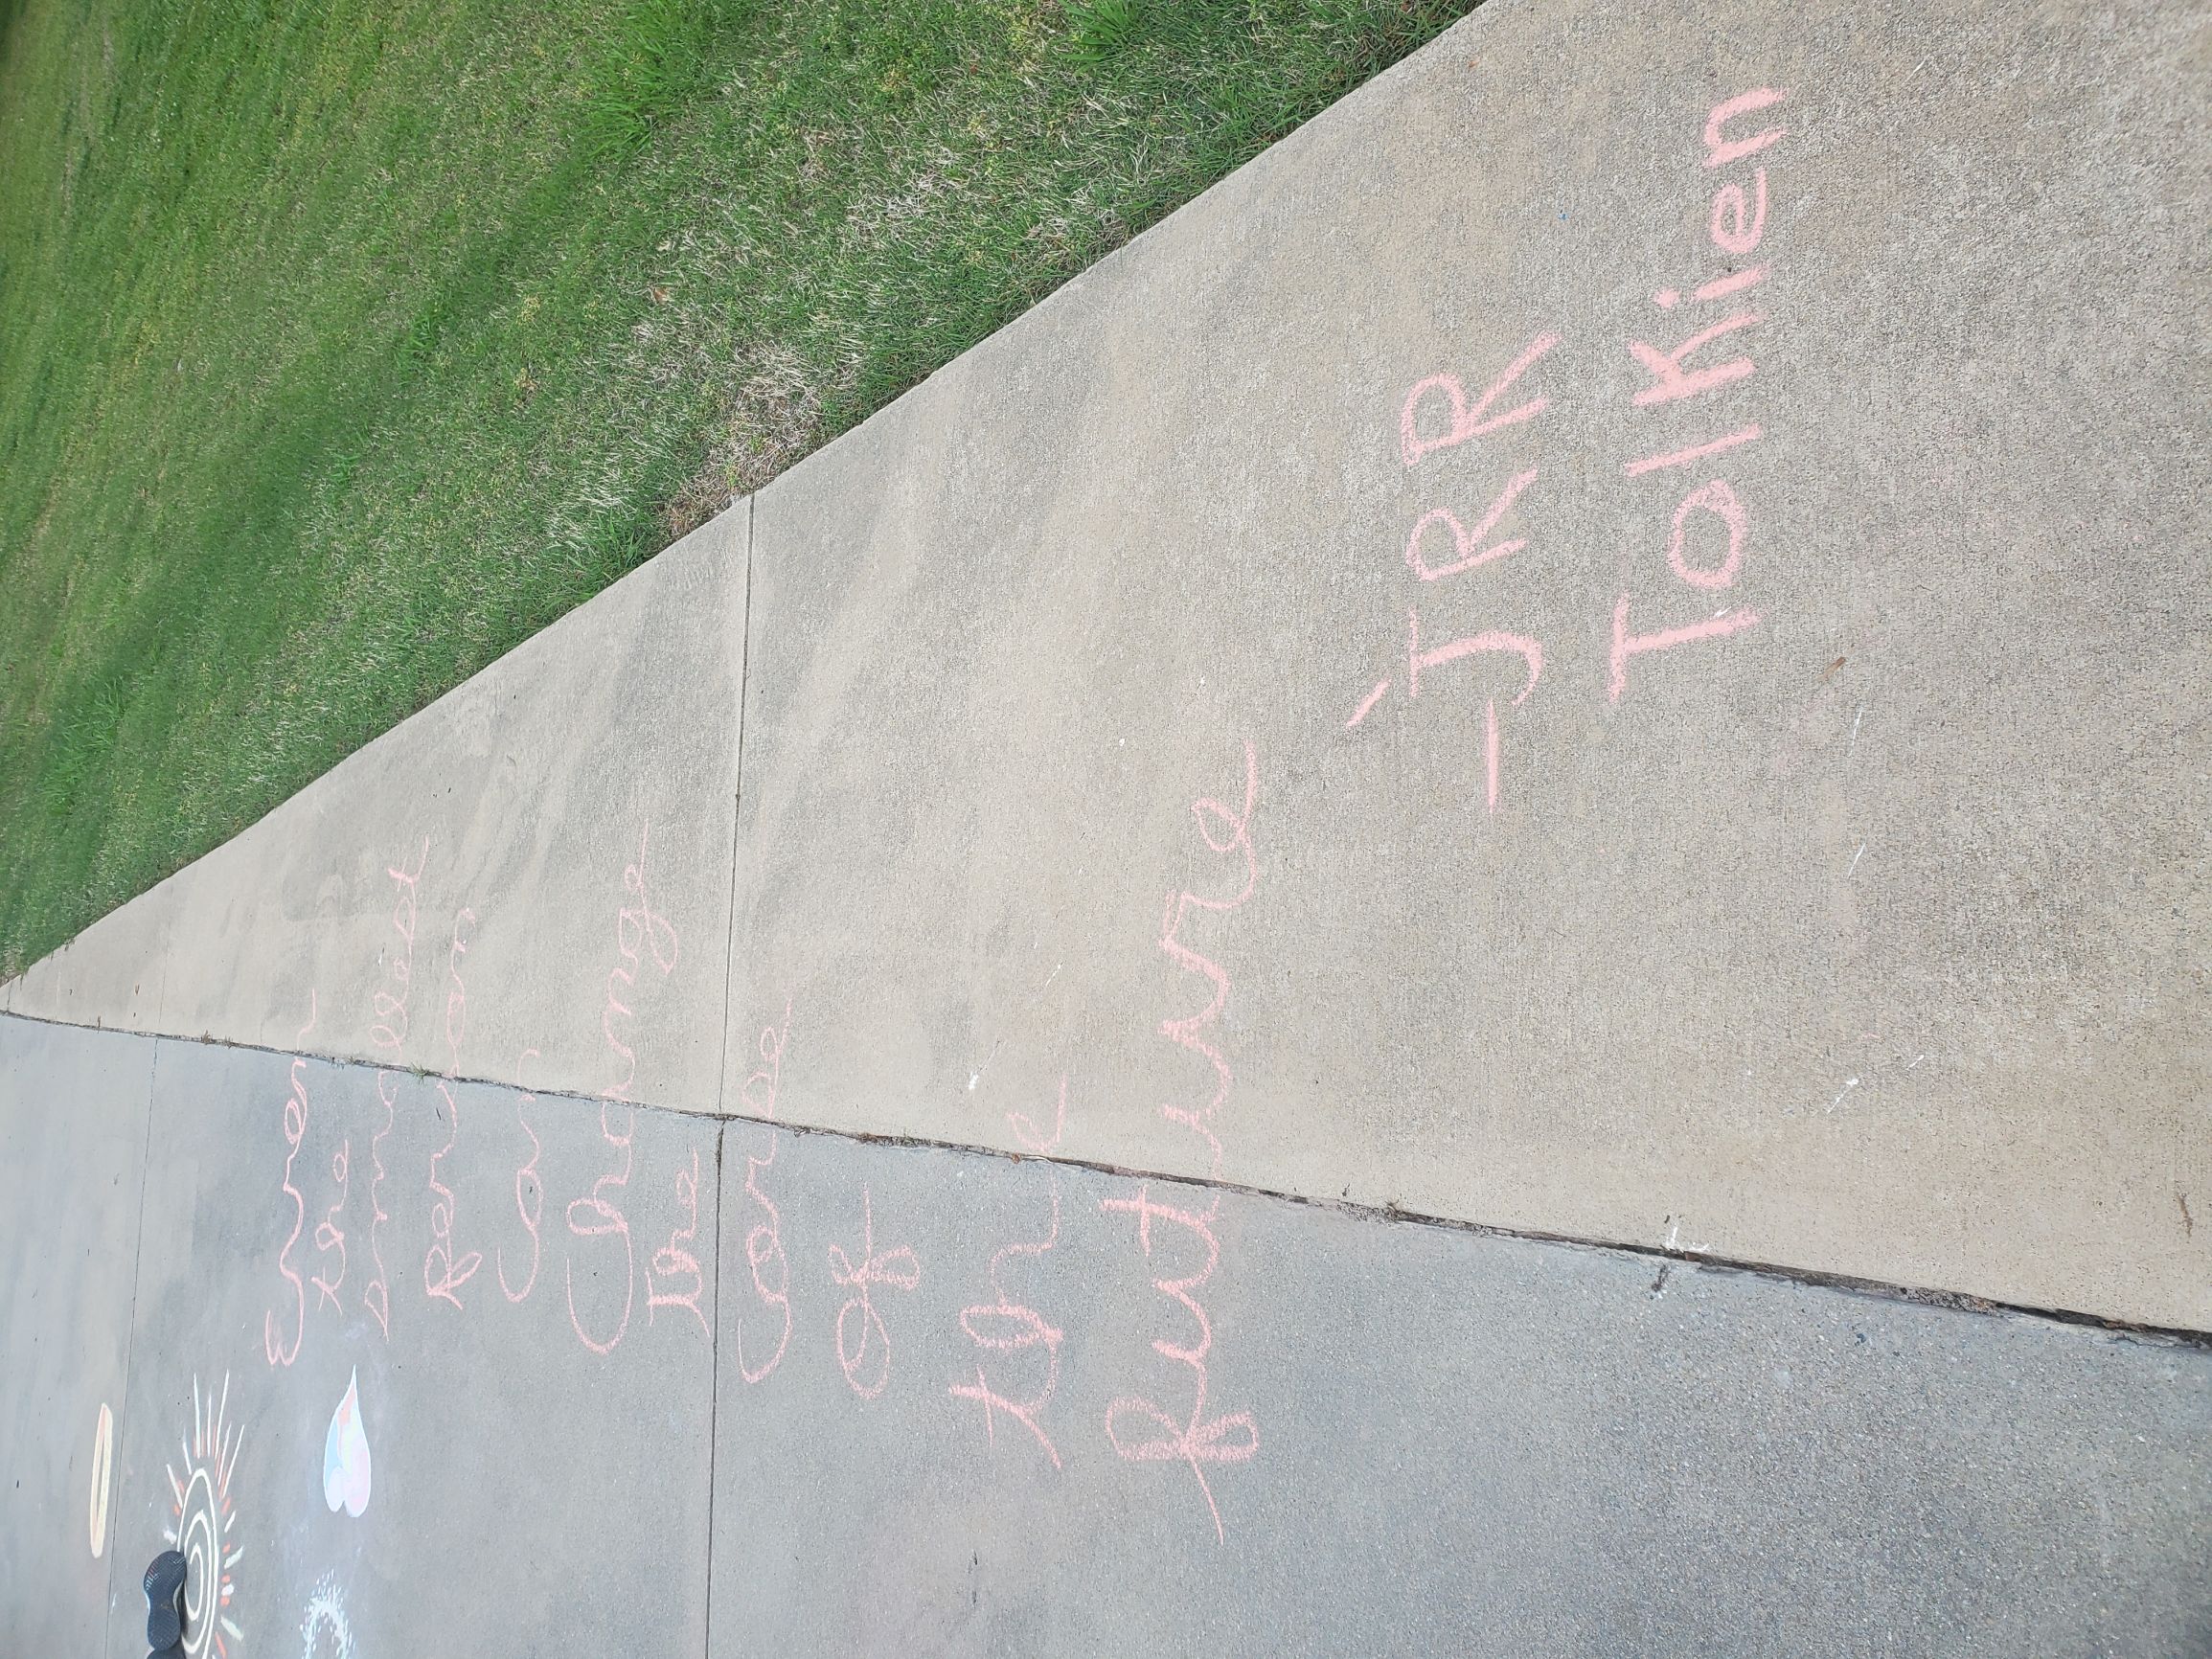 Even
the
smallest
Person
Can
Change
The
Corse
of
the
future
- JRR
Tolkien